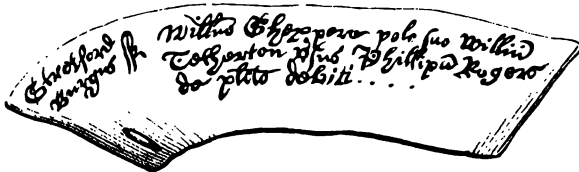 Stretford
Burgus ss
Willms Shexpere po se suo Willm
Tetherton vsus Phillipu Rogers
de plito debiti.....